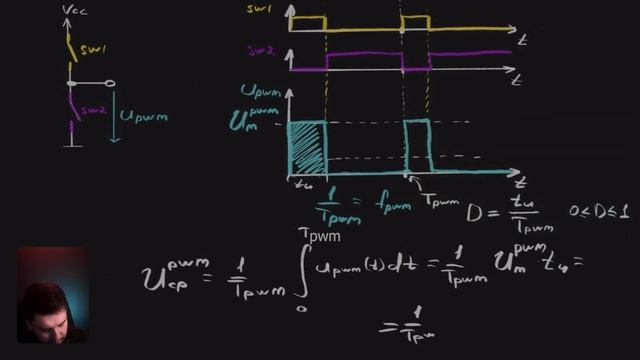 Vcc
sw1
sw2
u_pwm
sw1
t
sw2
t
u_pwm
U_m^pwm
t_u
t
1/T_pwm = f_pwm
T_pwm
D = t_u/T_pwm
0≤D≤1
U_cp^pwm = 1/T_pwm ∫_0^Tpwm u_pwm(t)dt = 1/T_pwm U_m^pwm · t_u =
= 1/Tpw